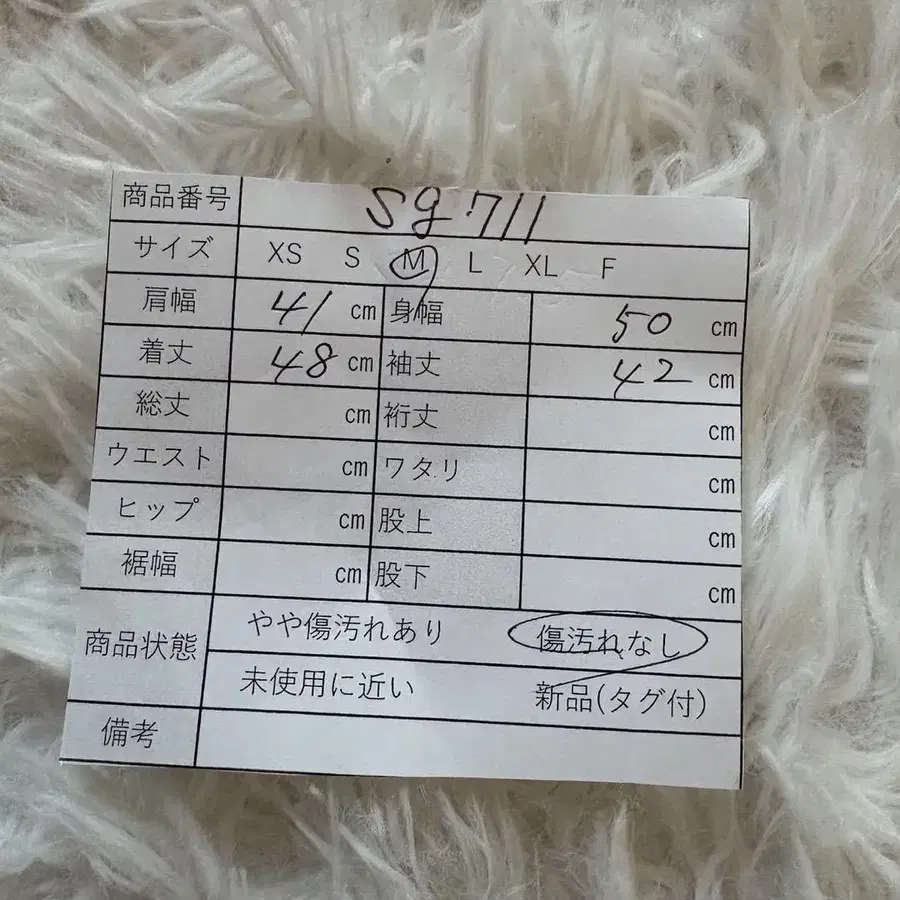 商品番号 sg711
サイズ XS S M L XL F
肩幅 41 cm 身幅 50 cm
着丈 48 cm 袖丈 42 cm
総丈 cm 裄丈 cm
ウエスト cm ワタリ cm
ヒップ cm 股上 cm
裾幅 cm 股下 cm
商品状態 やや傷汚れあり 傷汚れなし
未使用に近い 新品(タグ付)
備考